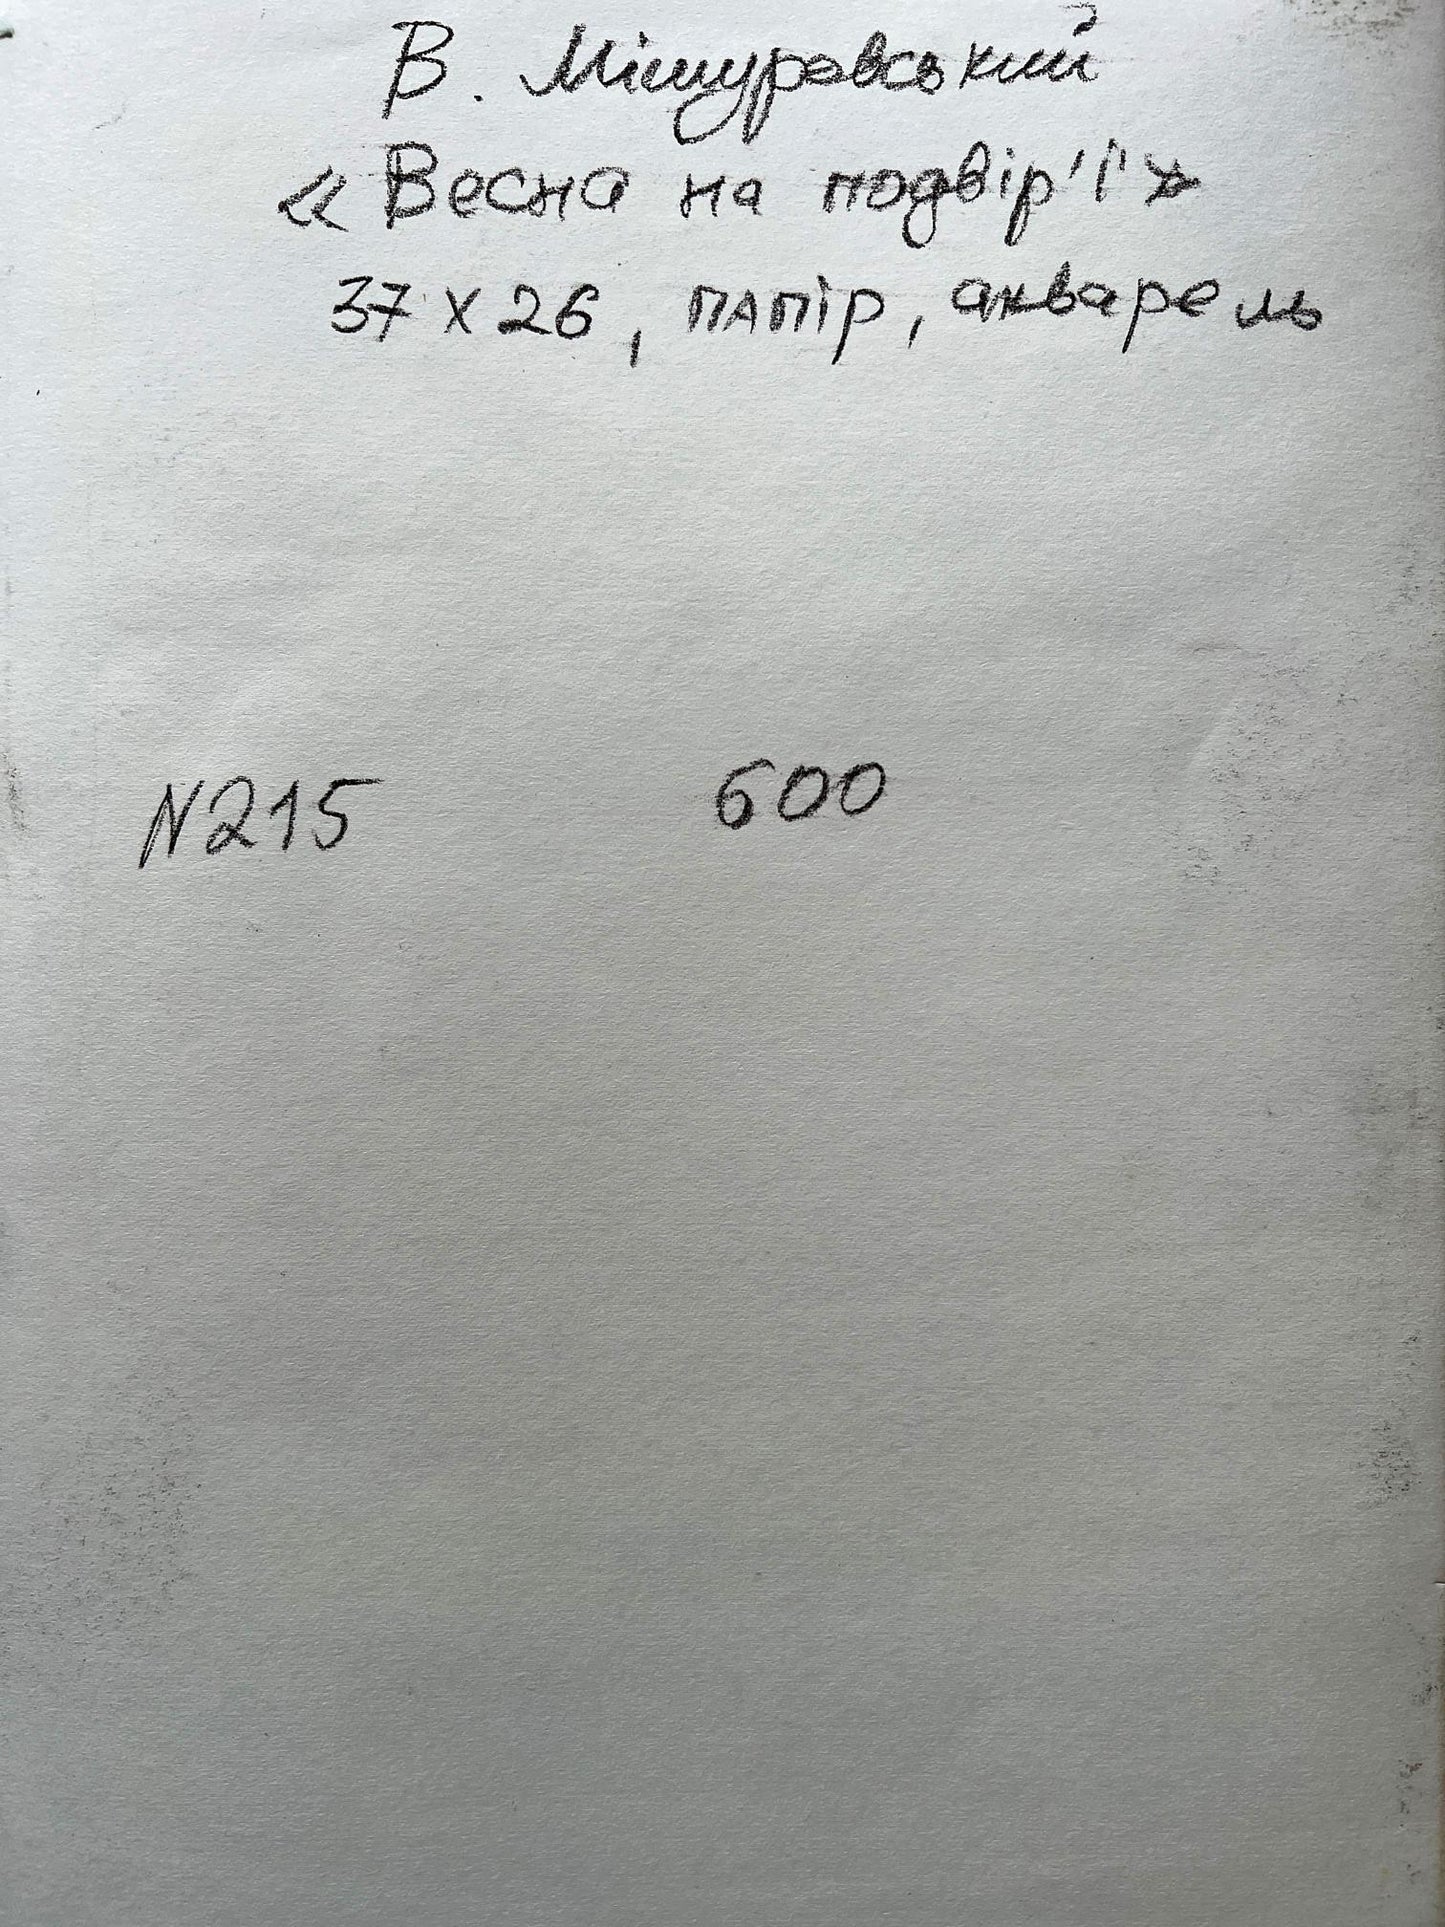 В. Мішуровський
«Весна на подвір'ї»
37 х 26, папір, акварель
N215 600